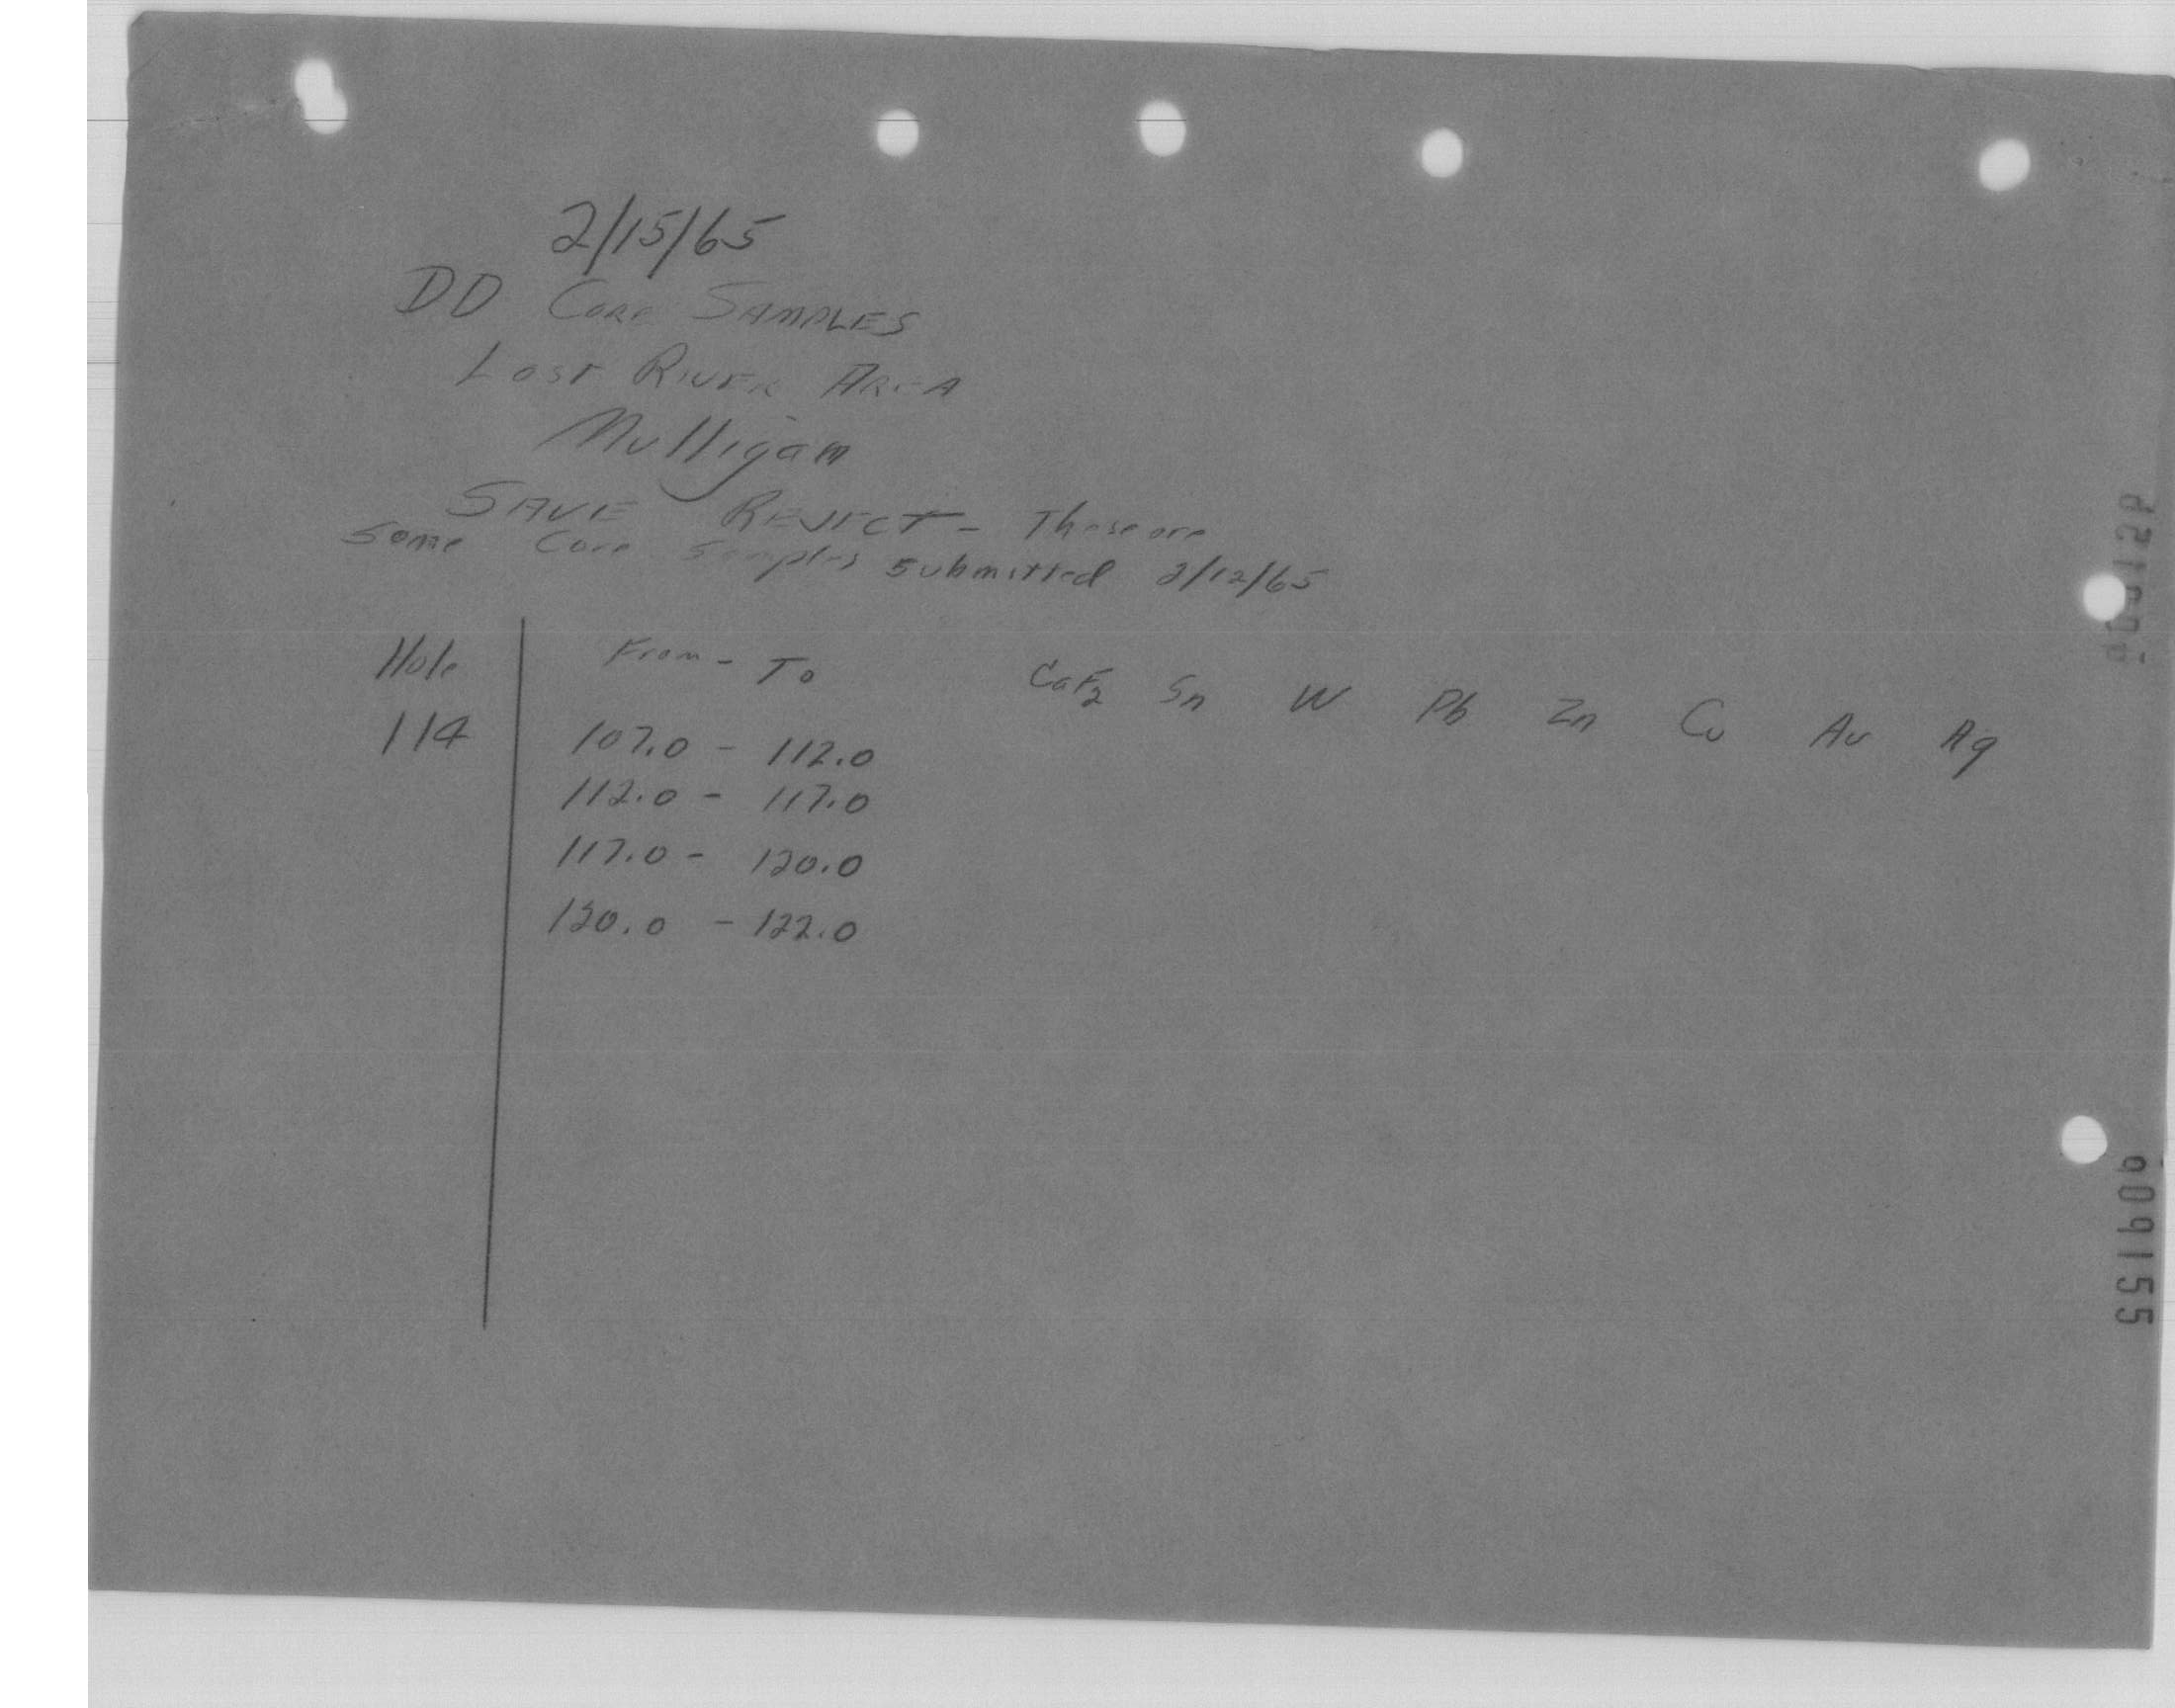 2/15/65
DD CORE SAMPLES
LOST RIVER AREA
Mulligan
SAVE REJECT - These are
some Core samples submitted 2/12/65
Hole From - To CaF2 Sn W Pb Zn Cu Au Ag
114 107.0 - 112.0
112.0 - 117.0
117.0 - 120.0
120.0 - 122.0